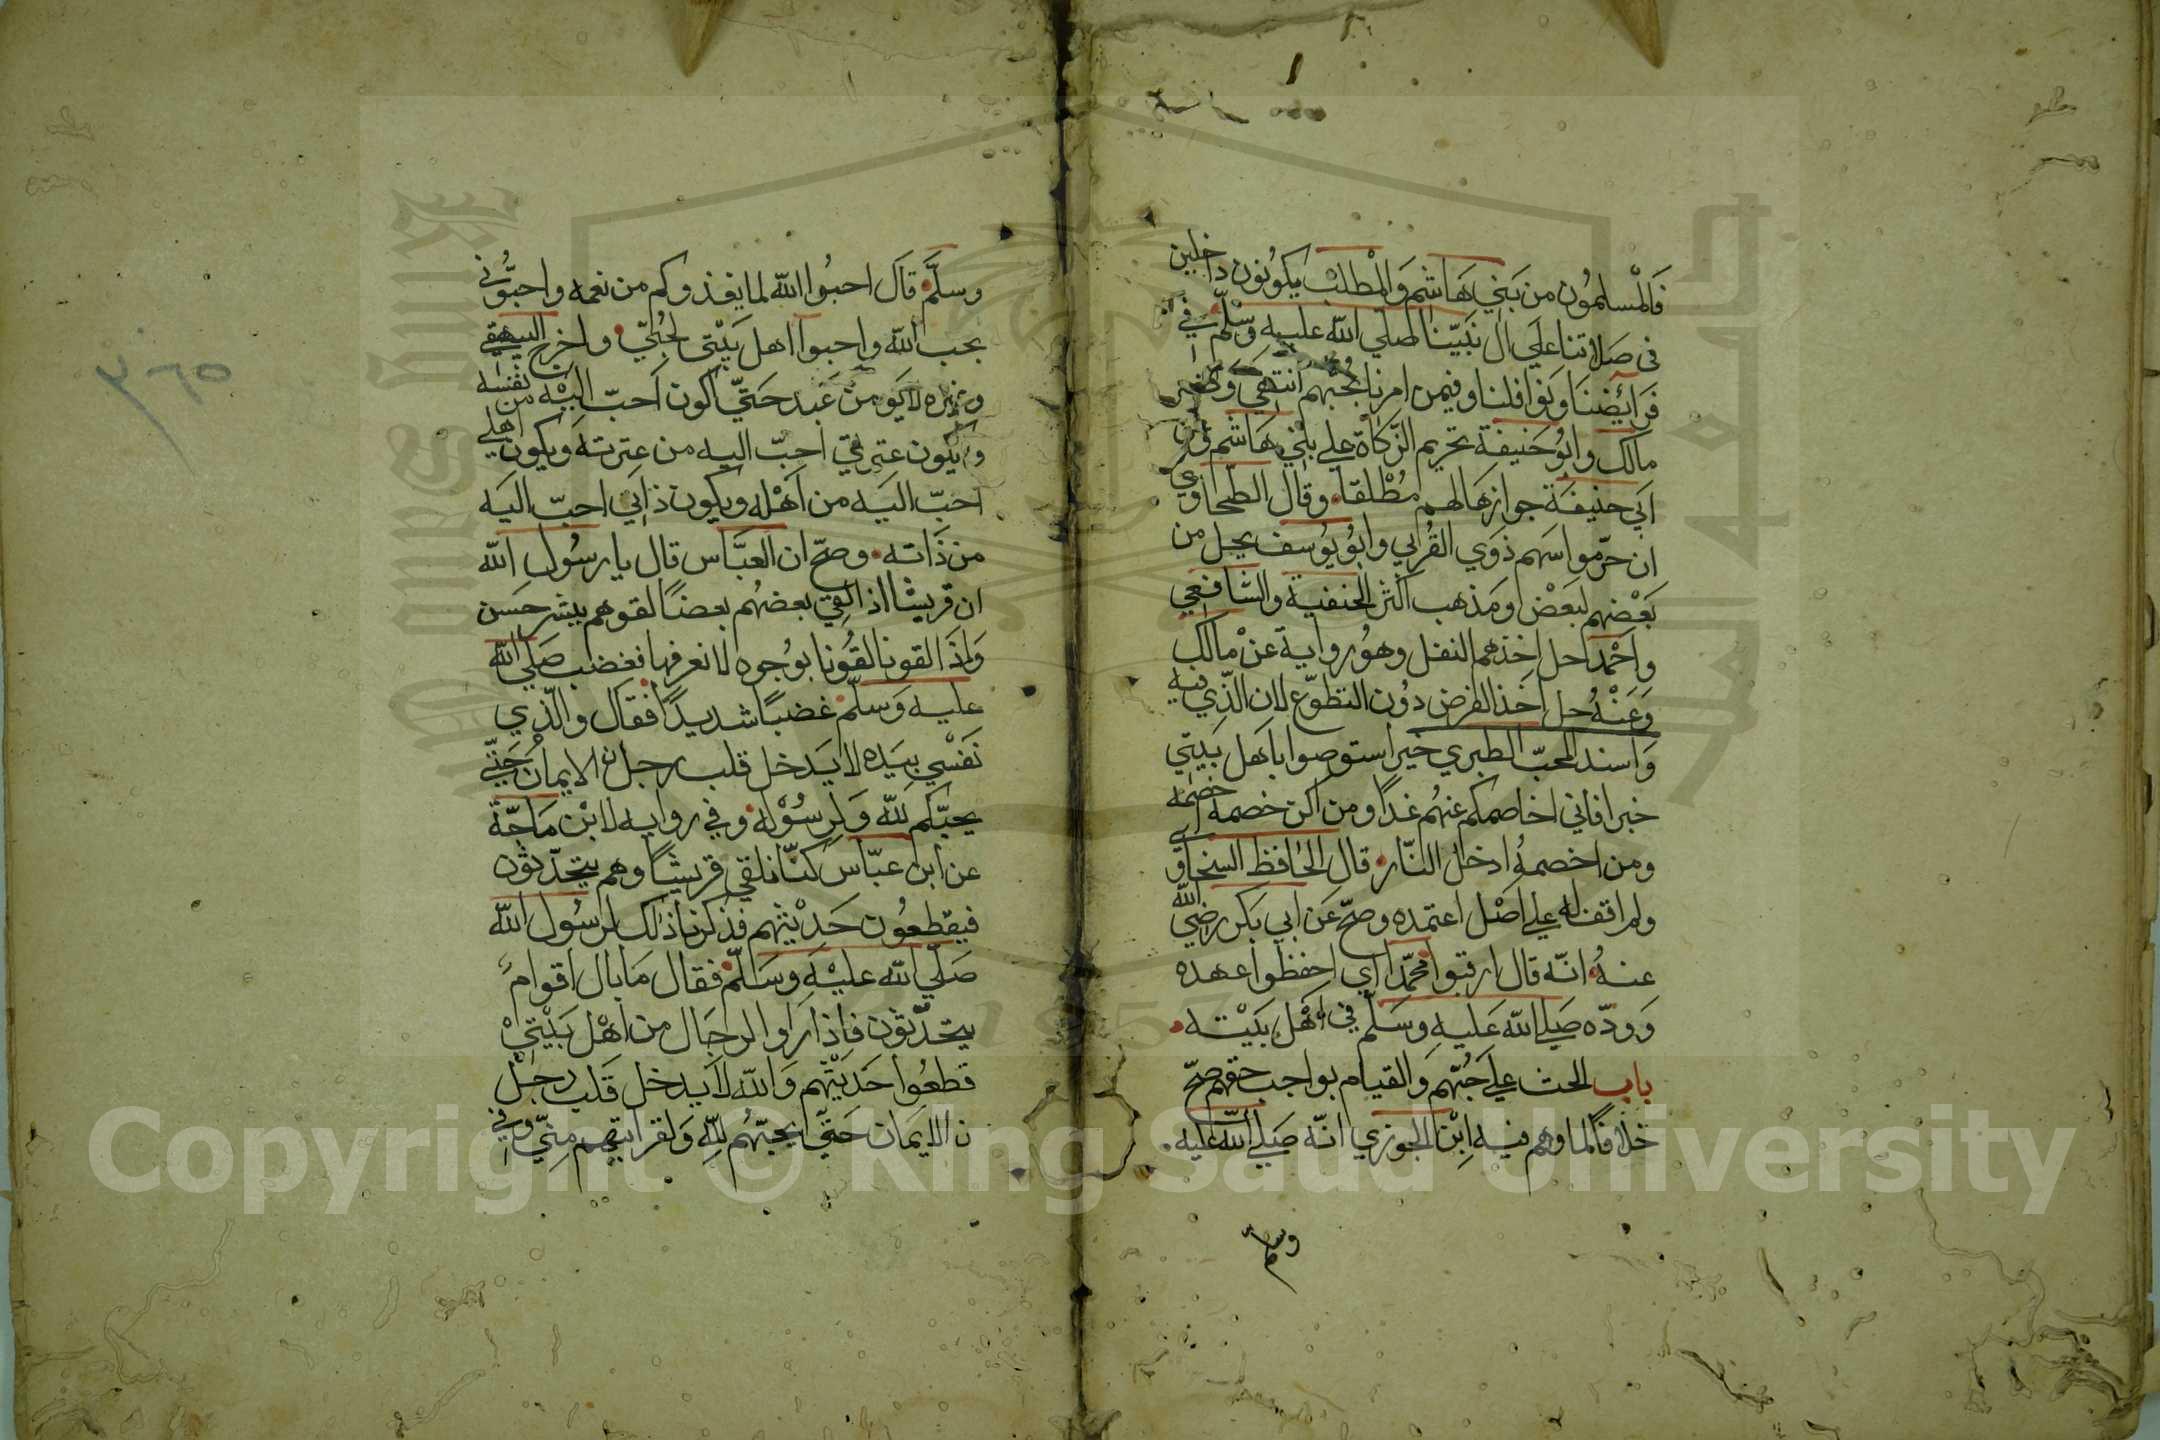 فَالْمسلمُون من بَني هَاشم وَالمْطلبْ يكوُنون داخلين
في صَلاتنا علَى ال نبَيّنا صلي الله عليه وسْلّم في
فَرَائِضنَا وَنوَافلنا وفيمن امرنا بحُبّهم انتهَي
مالك وابُو حَنيفة تحريم الزّكاة علي بنْي هَاشم وعن
ابَي حنيفة جوازهَا لهم مُطْلقا وقال الطحاوي
ان حرّموا سَهم ذوَي القُرابي وابُو يُوسف يحل من
بَعْضهم لبَعْض ومَذهب اكثر الحنفية والشافعي
واحْمد احل اخذهم النفل وهوُ رواية عنْ مالك
وَعَنْهُ حل اخذ الفرض دوُن التطوّع لان الذّي فيه
وَاسند المحبّ الطبري خير استوصوا باَهل بَيتي
خيرا فاني اخاصمكم عنهُم غدًا ومن اكن خصمه خصمه
ومن اخصمهُ ادخل النّار قال الحافظ السخاوي
ولم اقف له علي اصْل اعتمده وصحّ عَن ابي بَكر رضي الله
عنهُ انّه قال ارقبوا محمّدا اي احفظوا عهده
وَودّه صلي الله عَليه وسَلّم في اهْل بَيْته
باب الحث علي حُبّهم وَالقيام بواجب حقهم صحّ
خلافًا لما وهم فيه ابْن الجوزي انّه صَلي اللّه عليه
وسلم
وسلَّم قالَ احبُوا اللّه لما يغذوكم من نعمه واحبُّوني
بحب اللّه واحبوا اهل بَيْتي لحُبيّ واخرج البيهقي
وغيره لا يَومن عَبد حَتّي اكون اَحبّ اليْه من نفسه
وَتكون عترتي احبّ اليه من عترتهَ ويكون اهلي
احبّ اليَه من اَهْله ويكون ذاتي احبّ اليَه
من ذَاته وصحّ ان العبَّاس قال يا رسُول اللّه
ان قريشا اذا لقي بعضهُم بعضًا لقوهم ببشر حسَن
وَاذَا لقونا لقُونا بوُجوه لا نعرفها فغضب صَلي اللّه
عليه وَسلّم غضبًا شديدًا فقال والّذي
نَفسْي بيَده لا يَدخل قلب رجل الايمان حَتّي
يحبّكم للّه وَلرسُوْله وفي رواية لابْن مَاجّة
عن ابن عبّاس كنّا نلقي قريشًا وهم يتحدّثون
فيقطعوُن حَدِيْثهم فذكرنا ذلك لرسُول اللّه
صَلّي اللّه عليْه وسَلّم فقال مَا بال اقوام
يتحدّثون فاذا رَاوا الرجَال من اهْل بَيْتِيْ
قطعُوا حَديثْهم وَاللّه لا يَدخل قَلب رجل
ن الايمَان حَتّي يحبّهُم للّهِ وَلقرابتهم مِنّي وفي
٣٦٥